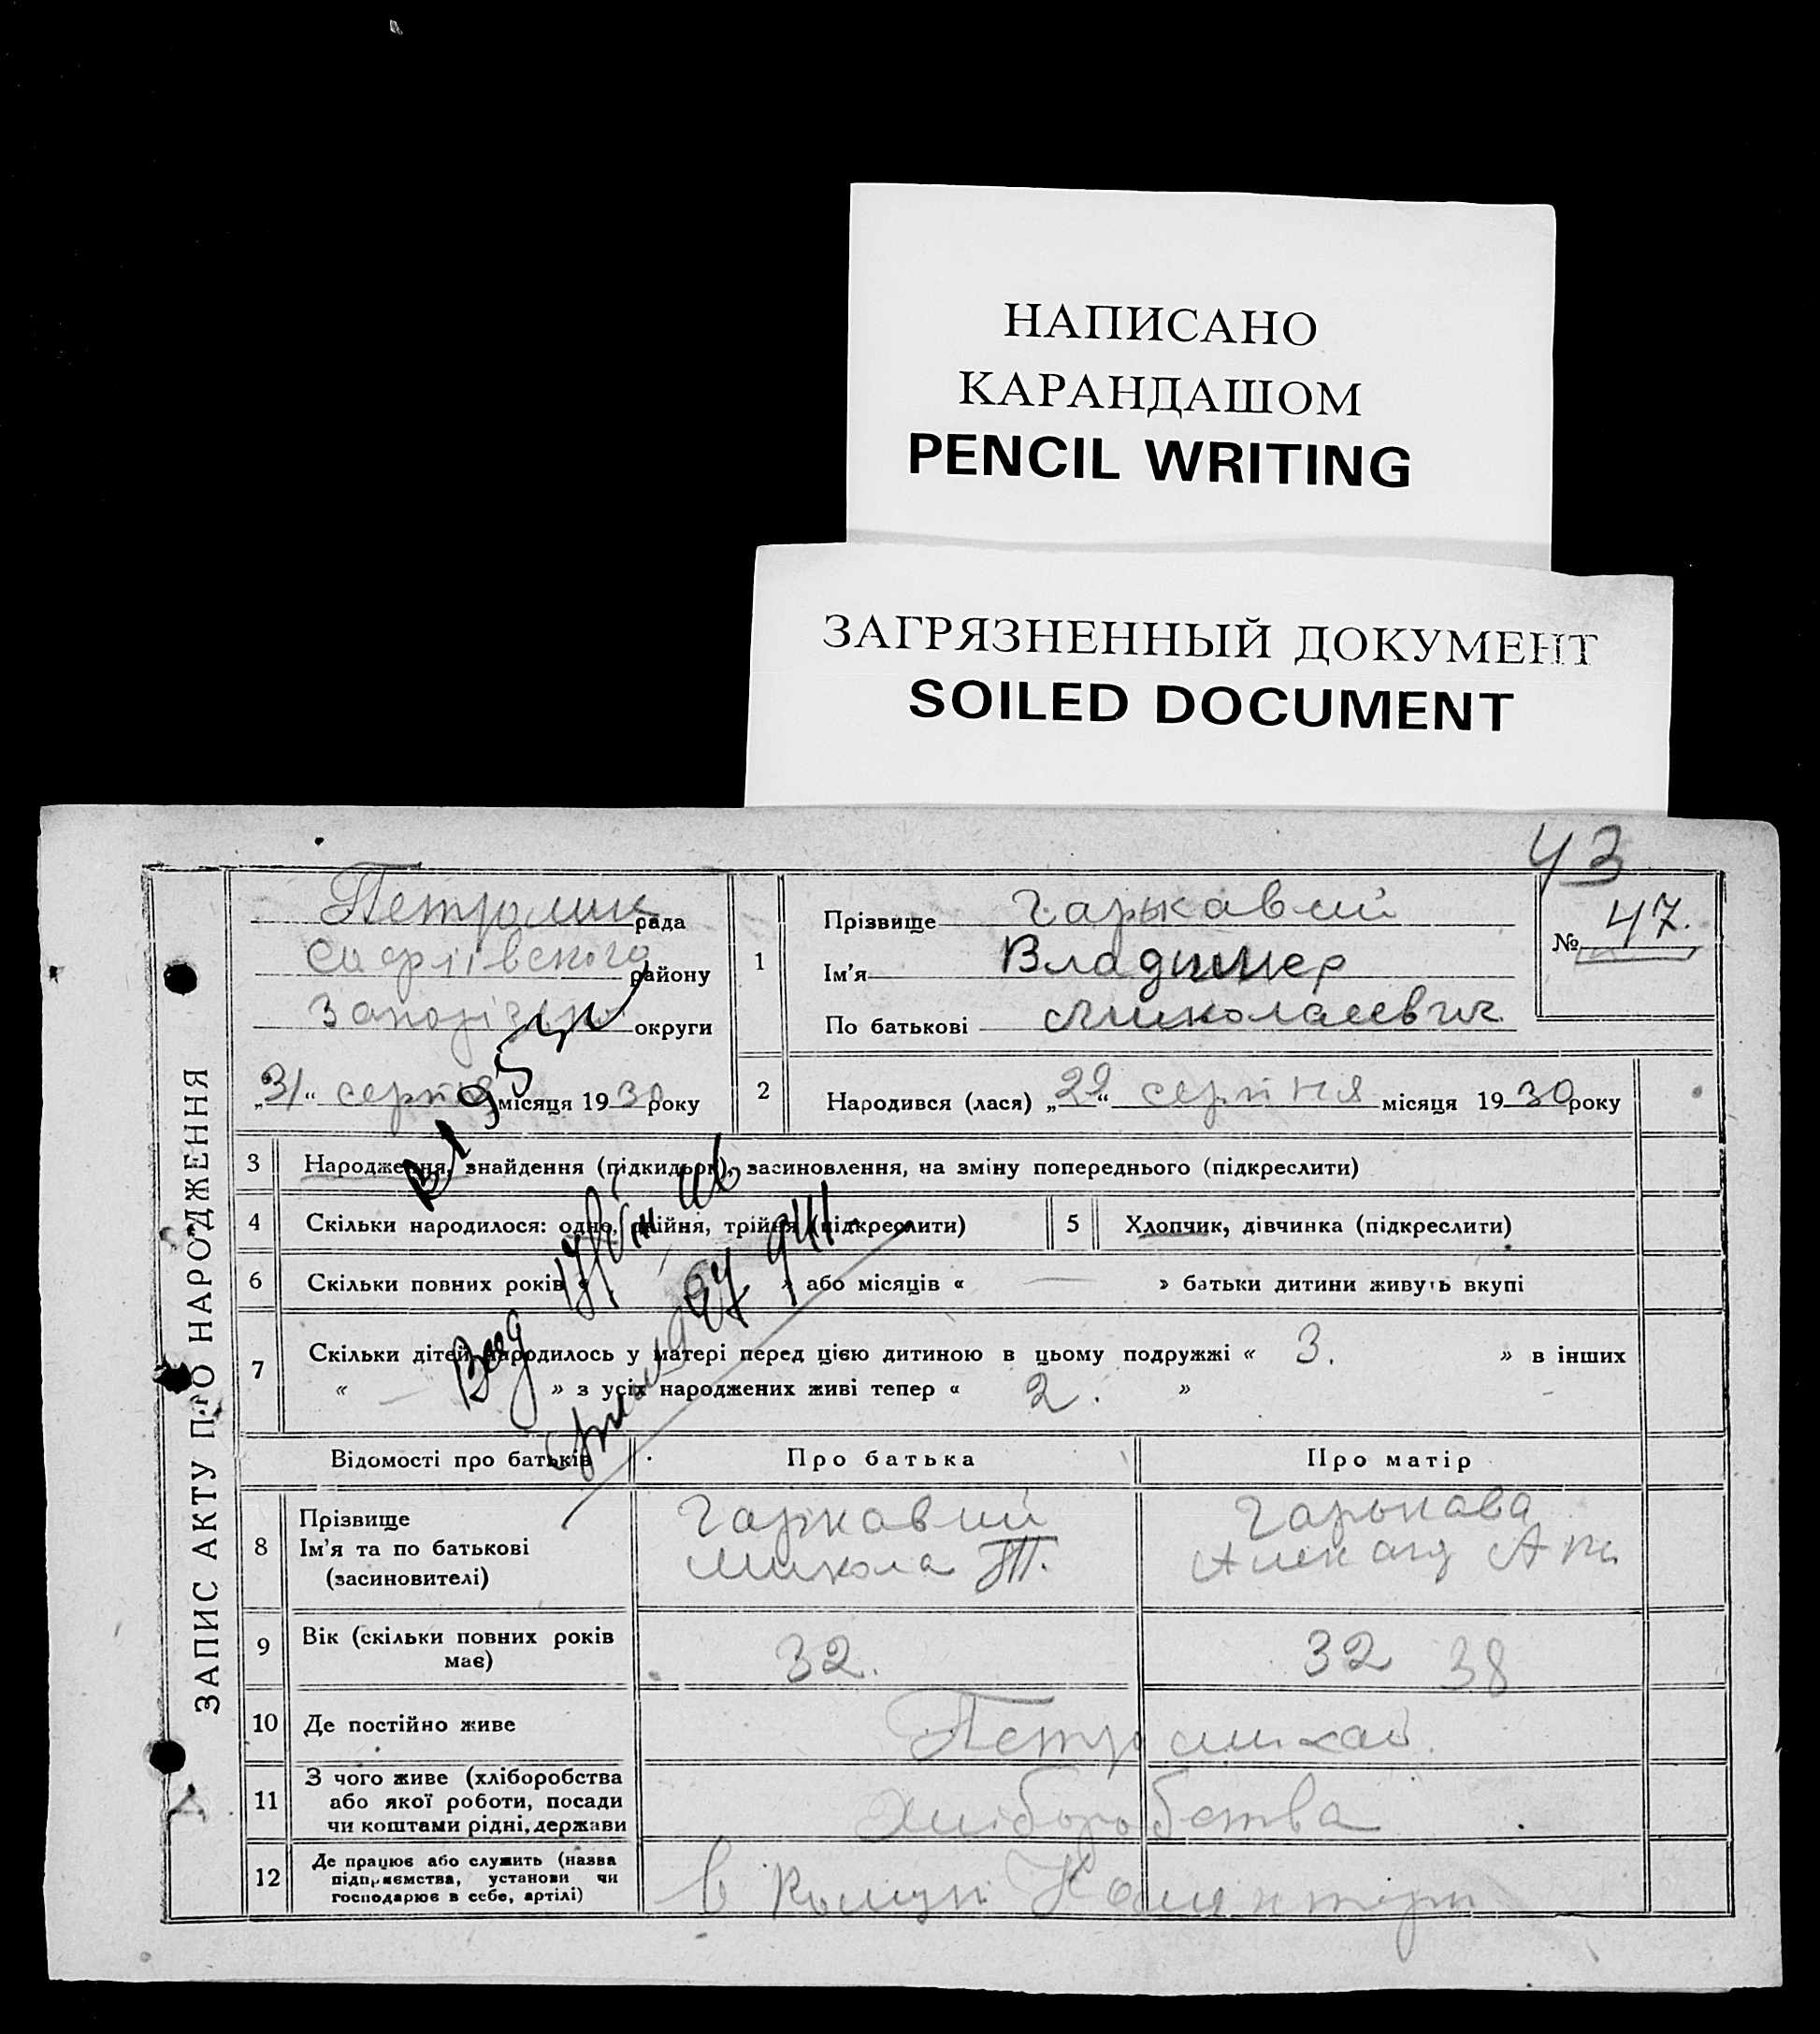 НАПИСАНО
КАРАНДАШОМ
PENCIL WRITING
ЗАГРЯЗНЕННЫЙ ДОКУМЕНТ
SOILED DOCUMENT
43
ЗАПИС АКТУ ПРО НАРОДЖЕННЯ
рада
Софіївского району
округи
„31“ серпня місяця 1930 року
1
Прізвище Гарькавий
Ім'я Владимер
По батькові Миколаевич
№ 47.
2
Народився (лася) „22“ серпня місяця 1930 року
3 Народження, знайдення (підкидьок), засиновлення, на зміну попереднього (підкреслити)
4 Скільки народилося: одно, двійня, трійня (підкреслити)
5 Хлопчик, дівчинка (підкреслити)
6 Скільки повних років « » або місяців « — » батьки дитини живуть вкупі
7 Скільки дітей народилось у матері перед цією дитиною в цьому подружжі « 3. » в інших
« — » з усіх народжених живі тепер « 2. »
Відомості про батьків
Про батька
Про матір
8 Прізвище
Ім'я та по батькові
(засиновителі)
Гаркавий
Микола Т.
Гарькава
Александ
9 Вік (скільки повних років
має)
32.
32 38
10 Де постійно живе
11 З чого живе (хліборобства
або якої роботи, посади
чи коштами рідні, держави
хліборобства
12 Де працює або служить (назва
підприємства, установи чи
господарює в себе, артілі)
в